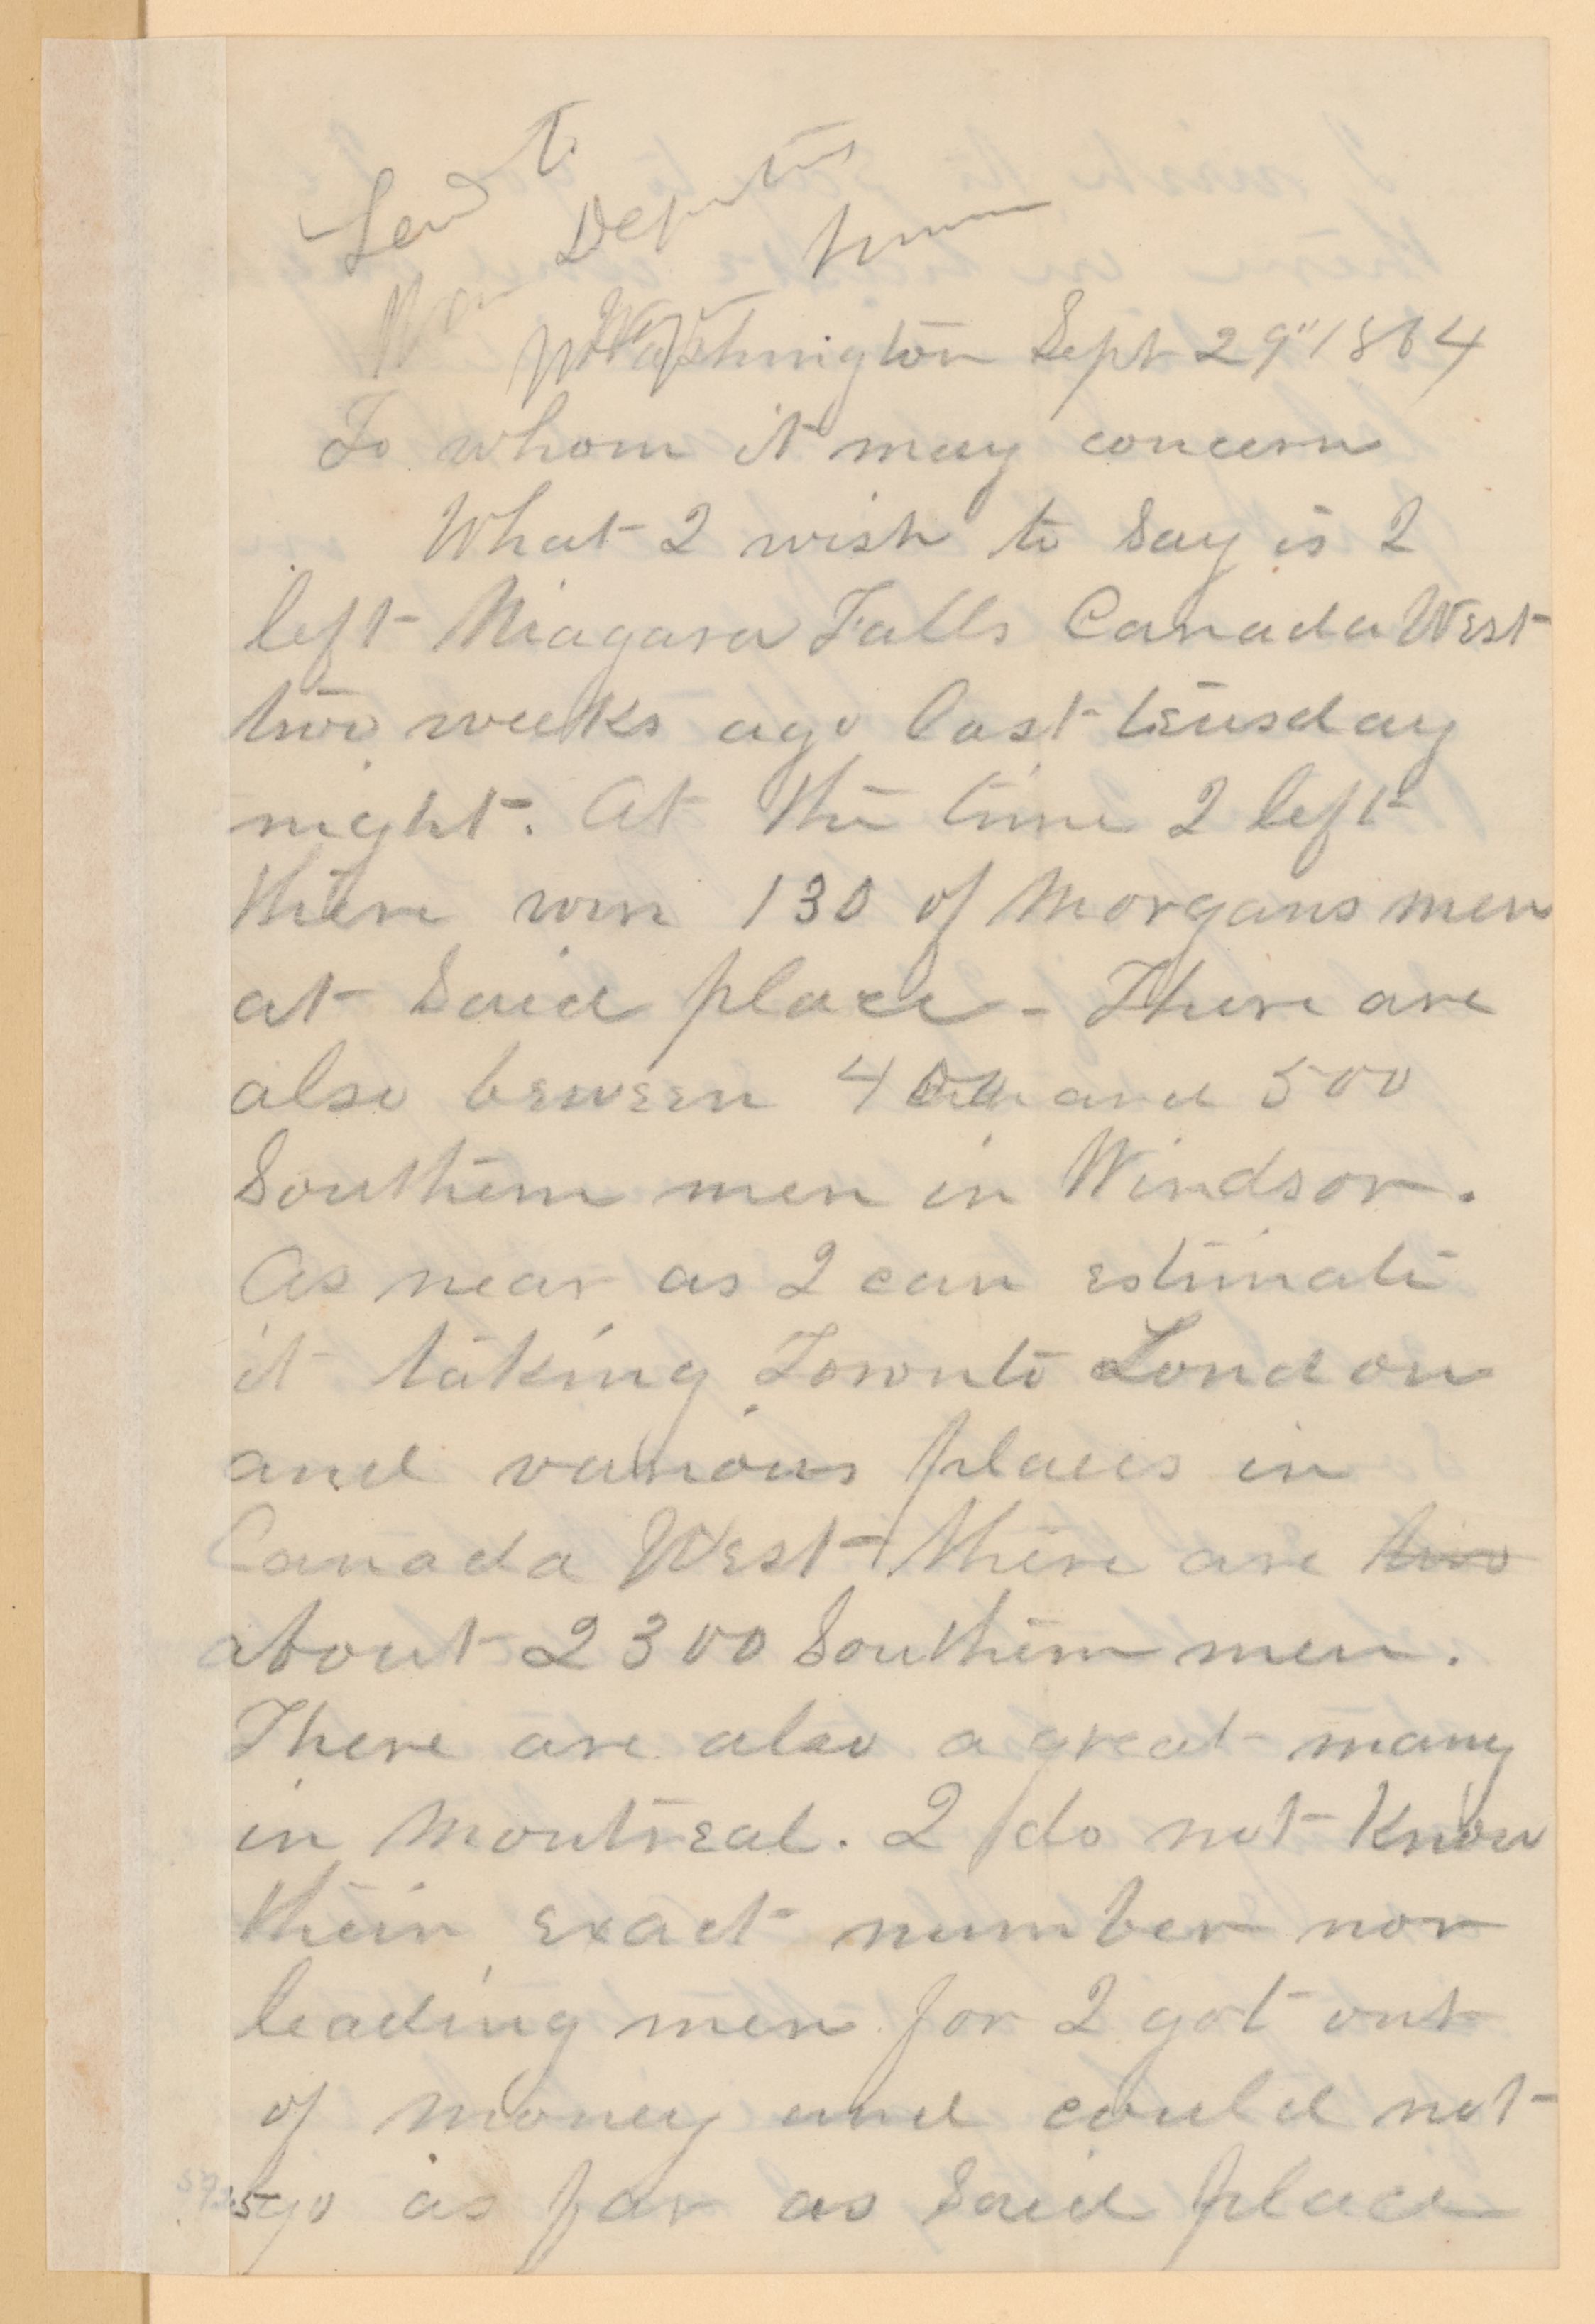 Send to
Deputies
Washington Sept 29" 1864
To whom it may concern
What I wish to say is I
left Niagara Falls Canada West
two weeks ago last teusday
night. At the time I left
there wer 130 of Morgans men
at Said place - There are
also beween 400 and 500
Southern men in Windsor.
As near as I can estimate
it taking Toronto London
and various places in
Canada West there are two
about 2300 Southern men.
There are also a great many
in Montreal. I do not Know
their exact number nor
leading men for I got out
of money and could not
go as far as Said place